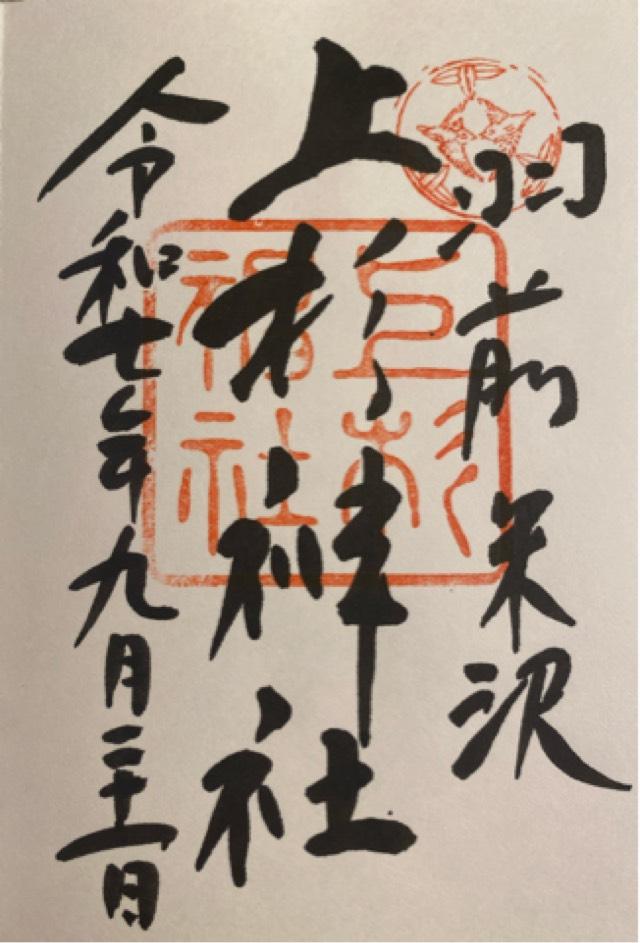 羽前米沢
上杉神社
令和七年九月二十一日
上杉
神社